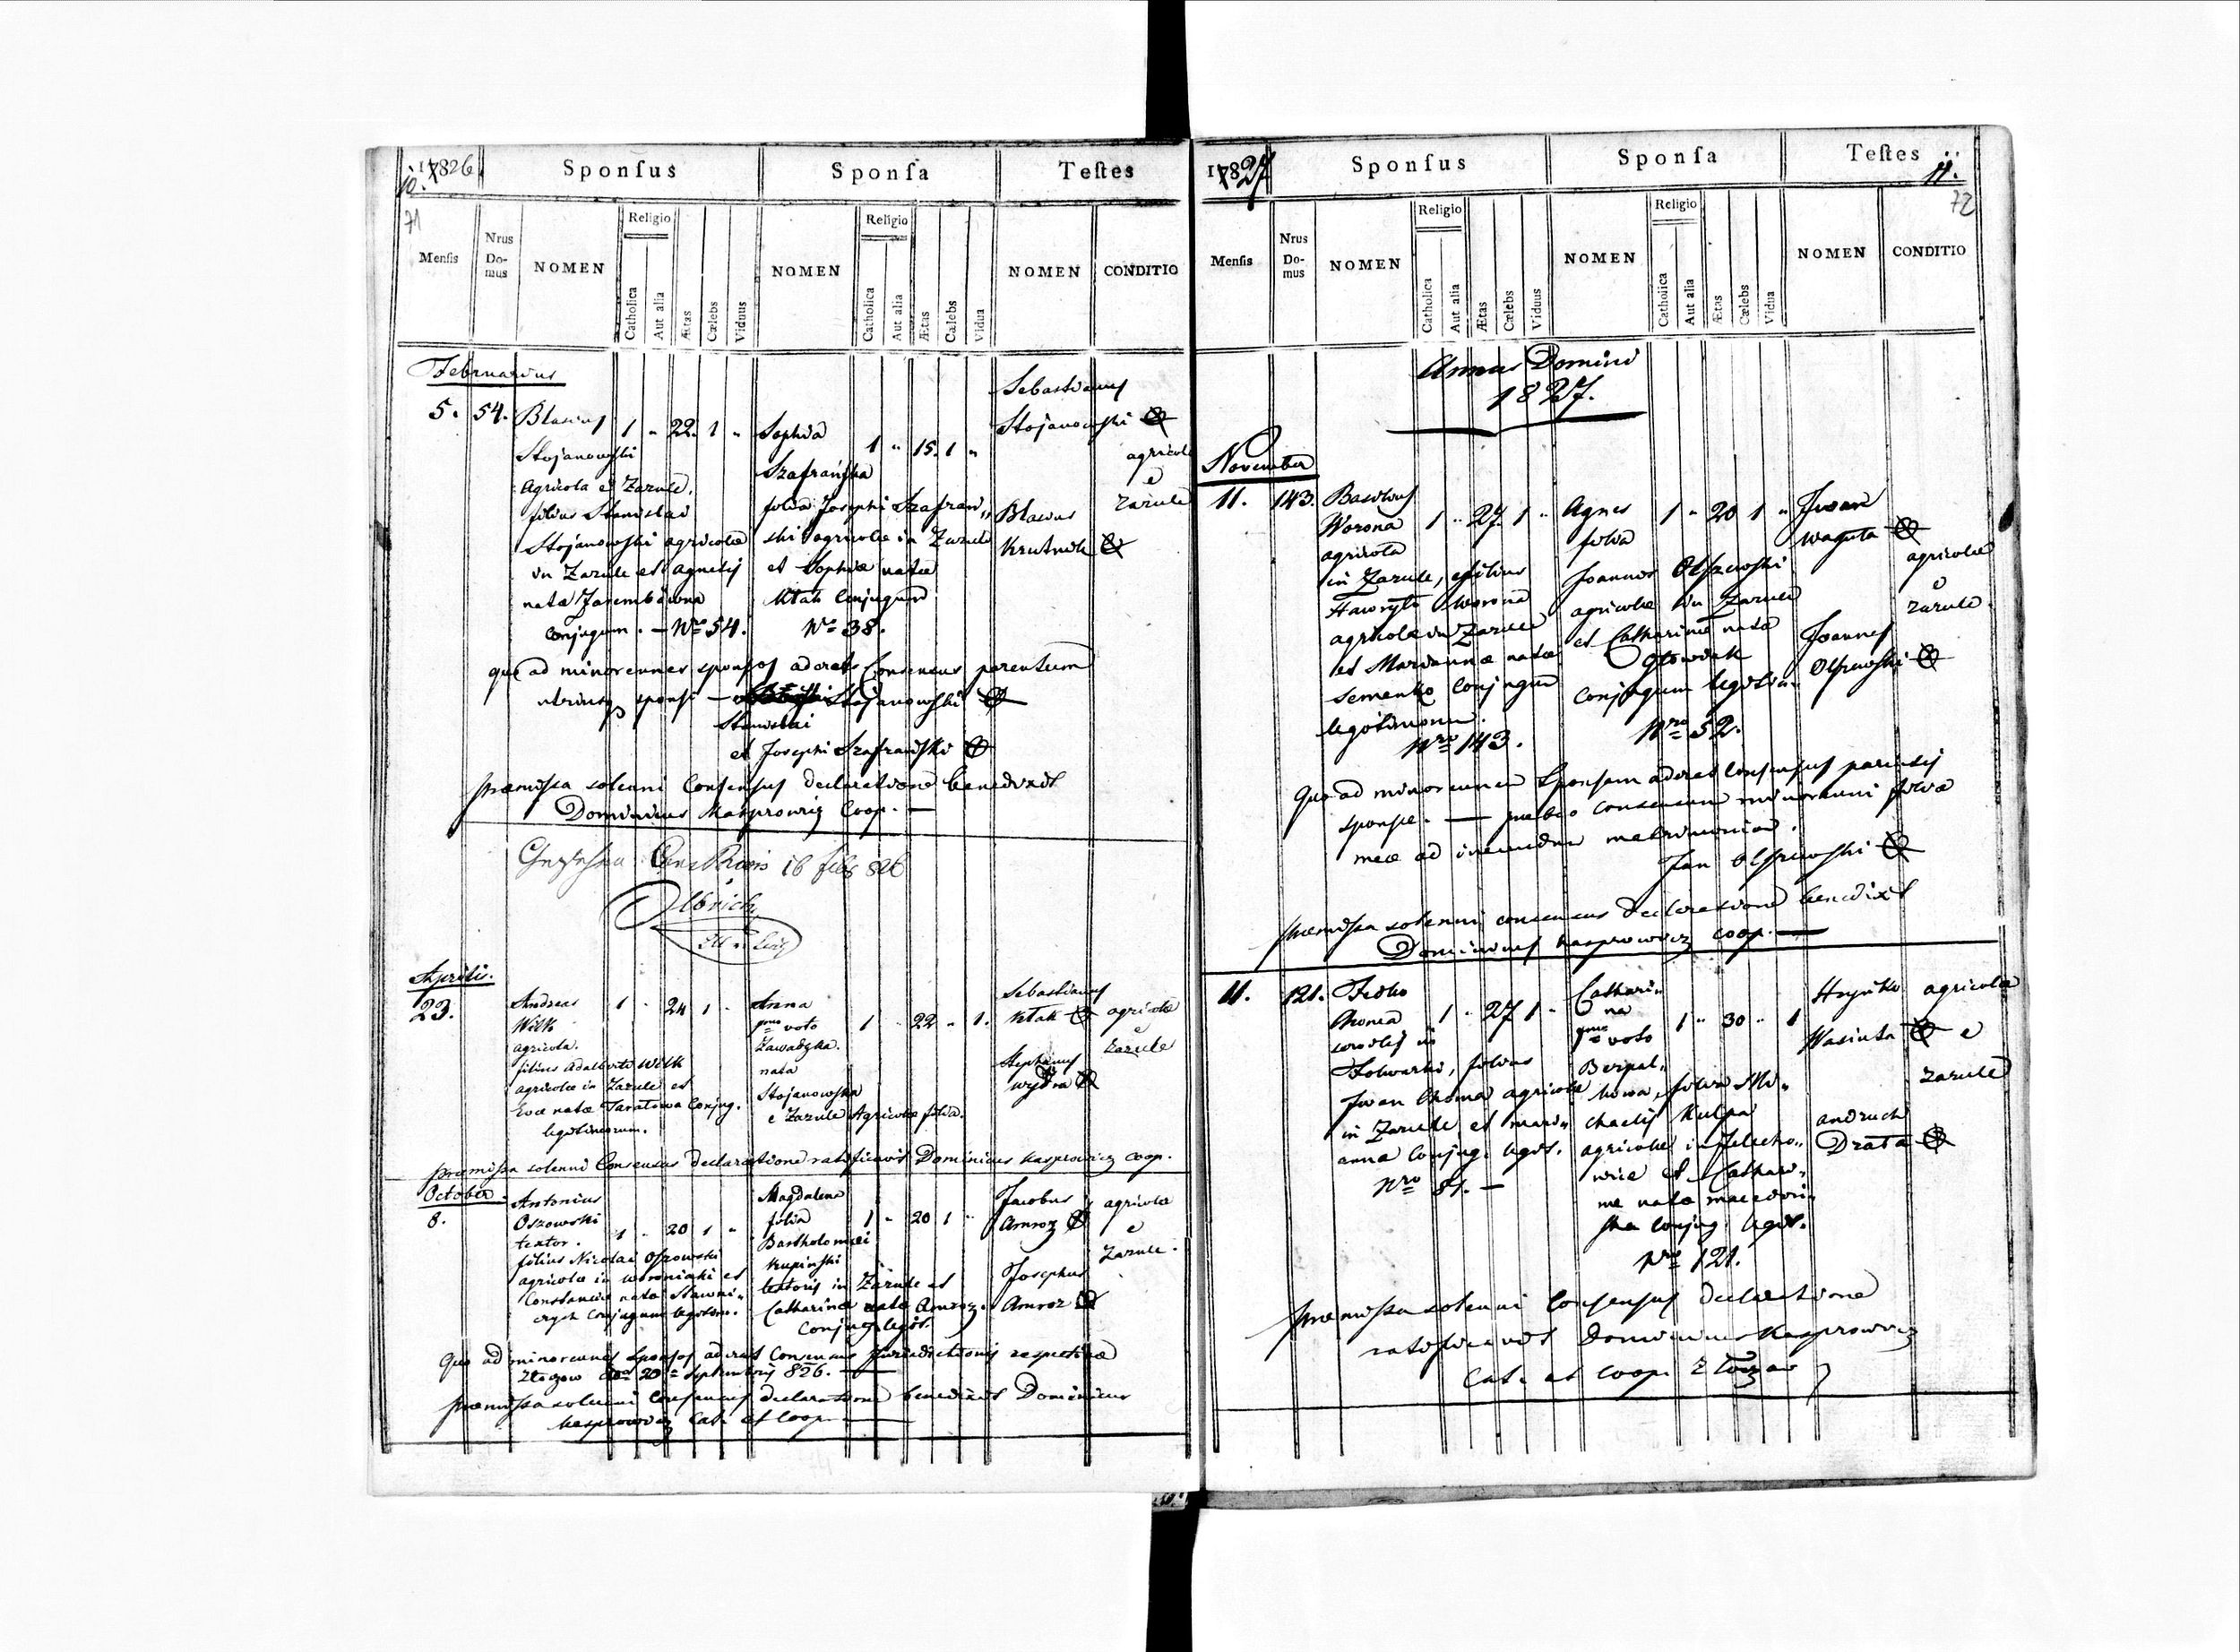 1826
10.
Sponsus
Sponsa
Testes
71
Mensis
Nrus Do-mus
NOMEN
Religio
Catholica
Aut alia
Ætas
Cælebs
Viduus
NOMEN
Religio
Catholica
Aut alia
Ætas
Cælebs
Vidua
NOMEN
CONDITIO
Februarius
5. 54. Blasius 1 " 22. 1 "
Stojanowski
Agricola e Zarule,
filius Stanislai
Stojanowski agricolæ
in Zarule et Agnetis
natæ Zarembówna
Conjugum. — Nro 54.
Sophia 1 " 15. 1 "
Szafrańska
filia Josephi Szafrań„
ski agricolæ in Zarule
et Sophiæ natæ
Ktak Conjugum
Nro 38.
Sebastianus
Stojanowski
agricolæ
e
Zarule
Blasius
Krutnik
quo ad minorennes sponsos aderat Consensus parentum
utriusq sponsi — Stojanowski
Stanislai
et Josephi Szafrański
præmissa solenni Consensus declaratione benedixit
Dominicus Kasprowicz Coop. —
16 febr 826
Aprilis.
23.
Andreas 1 " 24 1 "
Wilk
agricola.
filius Adalberti Wilk
agricolæ in Zarule et
Evæ natæ Taratowa Conjug.
legitimorum.
Anna
1mo voto 1 " 22 " 1.
Zawadzka.
nata
Stojanowska
e Zarule Agricolæ filia.
Sebastianus
Ktak
agricolæ
e
Zarule
Stephanus
Wydra
præmissa solenni Consensus declaratione ratificavit Dominicus Kasprowicz coop.
October
8.
Antonius
Oszowski
textor. 1 " 20 1 "
filius Nicolai Oszowski
agricolæ in Woroniaki et
Constantiæ natæ Sławni„
czych Conjugum legitim.
Magdalena
filia 1 " 20 1 "
Bartholomæi
Kupinski
textoris in Zarule et
Catharinæ natæ Amroz.
Conjug. legit.
Jacobus
Amroz
agricolæ
e
Zarule.
Josephus
Amroz
Quo ad minorennes Sponsos aderat Consensus Jurisdictionis respectivæ
Złoczow ddo 20 Septembris 826. —
præmissa solenni Consensus declaratione benedixit Dominicus
Kasprowicz Cat. et Coop. —
1827
Sponsus
Sponsa
Testes
11.
72
Mensis
Nrus Do-mus
NOMEN
Religio
Catholica
Aut alia
Ætas
Cælebs
Viduus
NOMEN
Religio
Catholica
Aut alia
Ætas
Cælebs
Vidua
NOMEN
CONDITIO
Annus Domini
1827.
November
11. 143. Basilius
Worona 1 " 27. 1 "
agricola
in Zarule, filius
Hawryło Worona
agricolæ in Zarule
et Mariannæ natæ
Semenko Conjugum
legitimorum.
Nro 143.
Agnes 1 " 20 1 "
filia
Joannis Olszewski
agricolæ in Zarule
et Catharinæ natæ
Głowiak
Conjugum legitim.
Nro 52.
Iwan
Waguta
agricolæ
e
Zarule.
Joannes
Olszewski
Quo ad minorennem Sponsam aderat Consensus parentis
sponsæ. — præbeo consensum minorenni filiæ
meæ ad ineundum matrimonium.
Jan Olszewski
præmissa solenni consensus declaratione benedixit
Dominicus Kasprowicz coop. —
11. 121. Fedko
Choma 1 " 27 1 "
in
Folwarki, filius
Iwan Choma agricolæ
in Zarule et Mari„
anna Conjug. legit.
Nro 81. —
Cathari„
na
1mo voto 1 " 30 " 1
filia Mi„
chaelis Kulpa
agricolæ in Jelecho„
wice et Cathari„
næ natæ
Conjug. legit.
Nro 121.
Hryńko
Wasiuta
agricolæ
e
Zarule
Andruch
Drata
præmissa solenni Consensus declaratione
ratificavit Dominicus Kasprowicz
Cat. et Coop. Złoczow